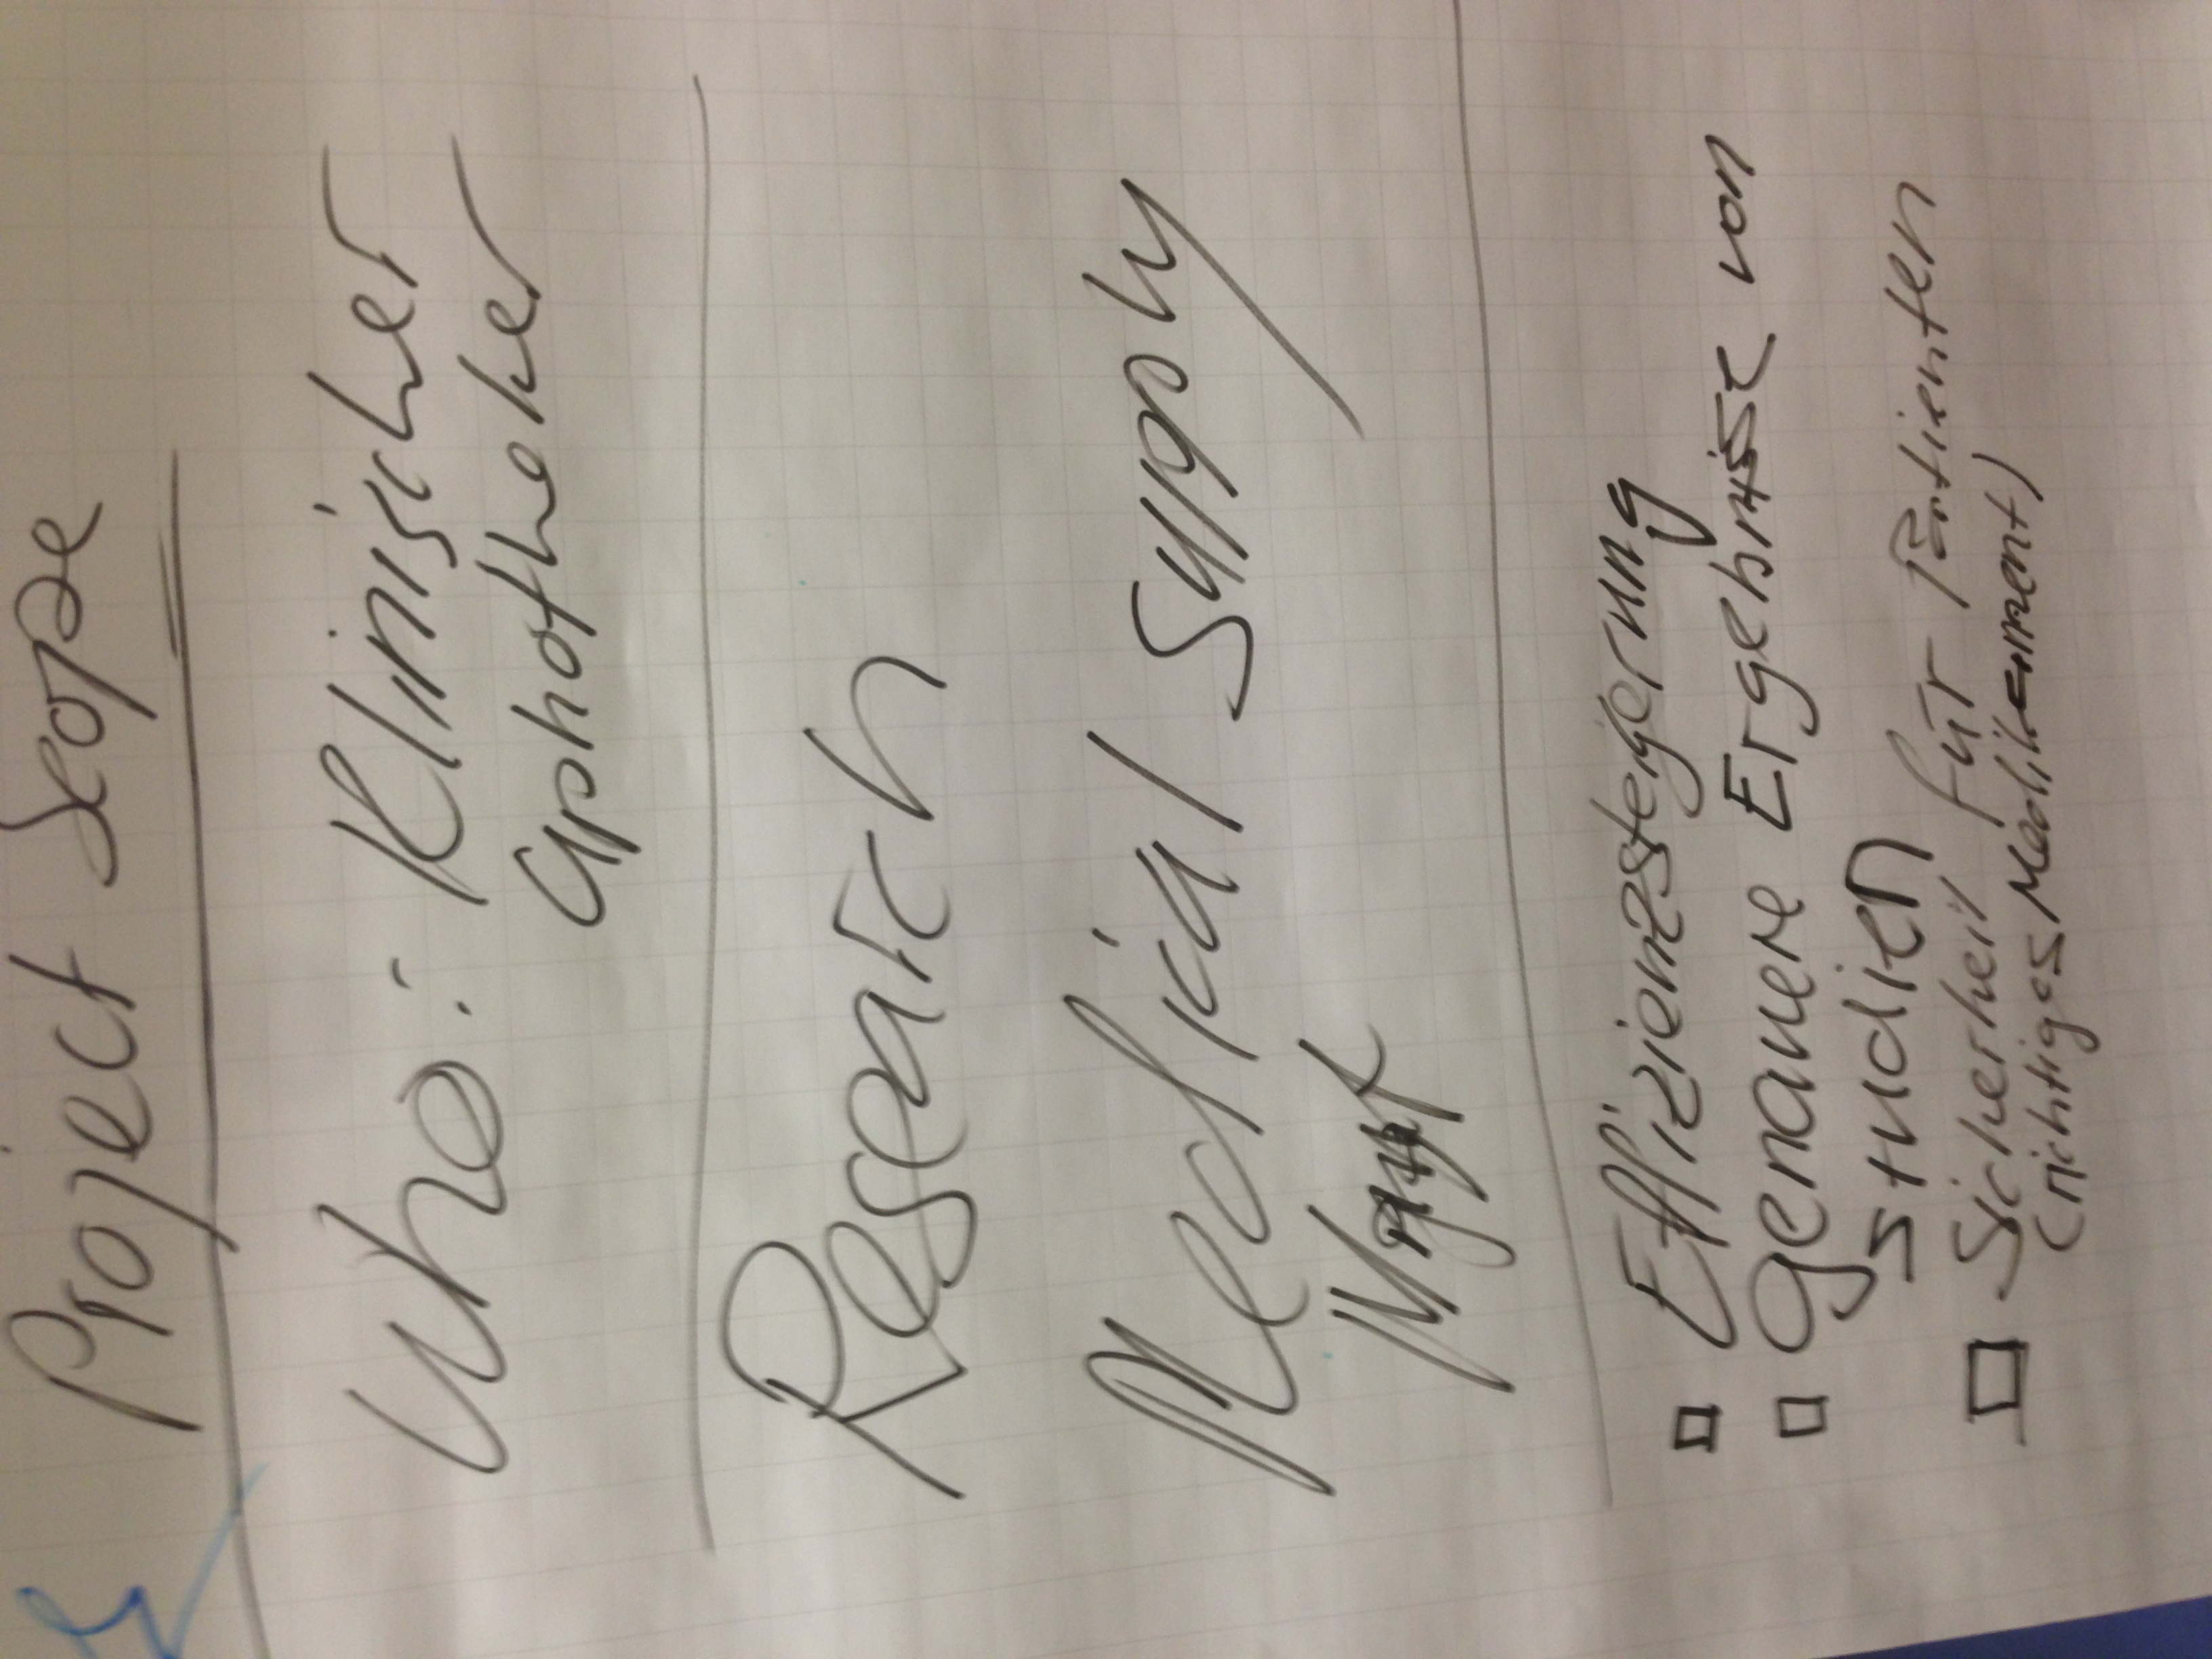 Project Scope
Who: Klinischer
Aphotheker
Research
Medical Supply
Mgmt
Effizienzsteigerung
genauere Ergebnisse von
Studien
Sicherheit für Patienten
(richtiges Medikament)